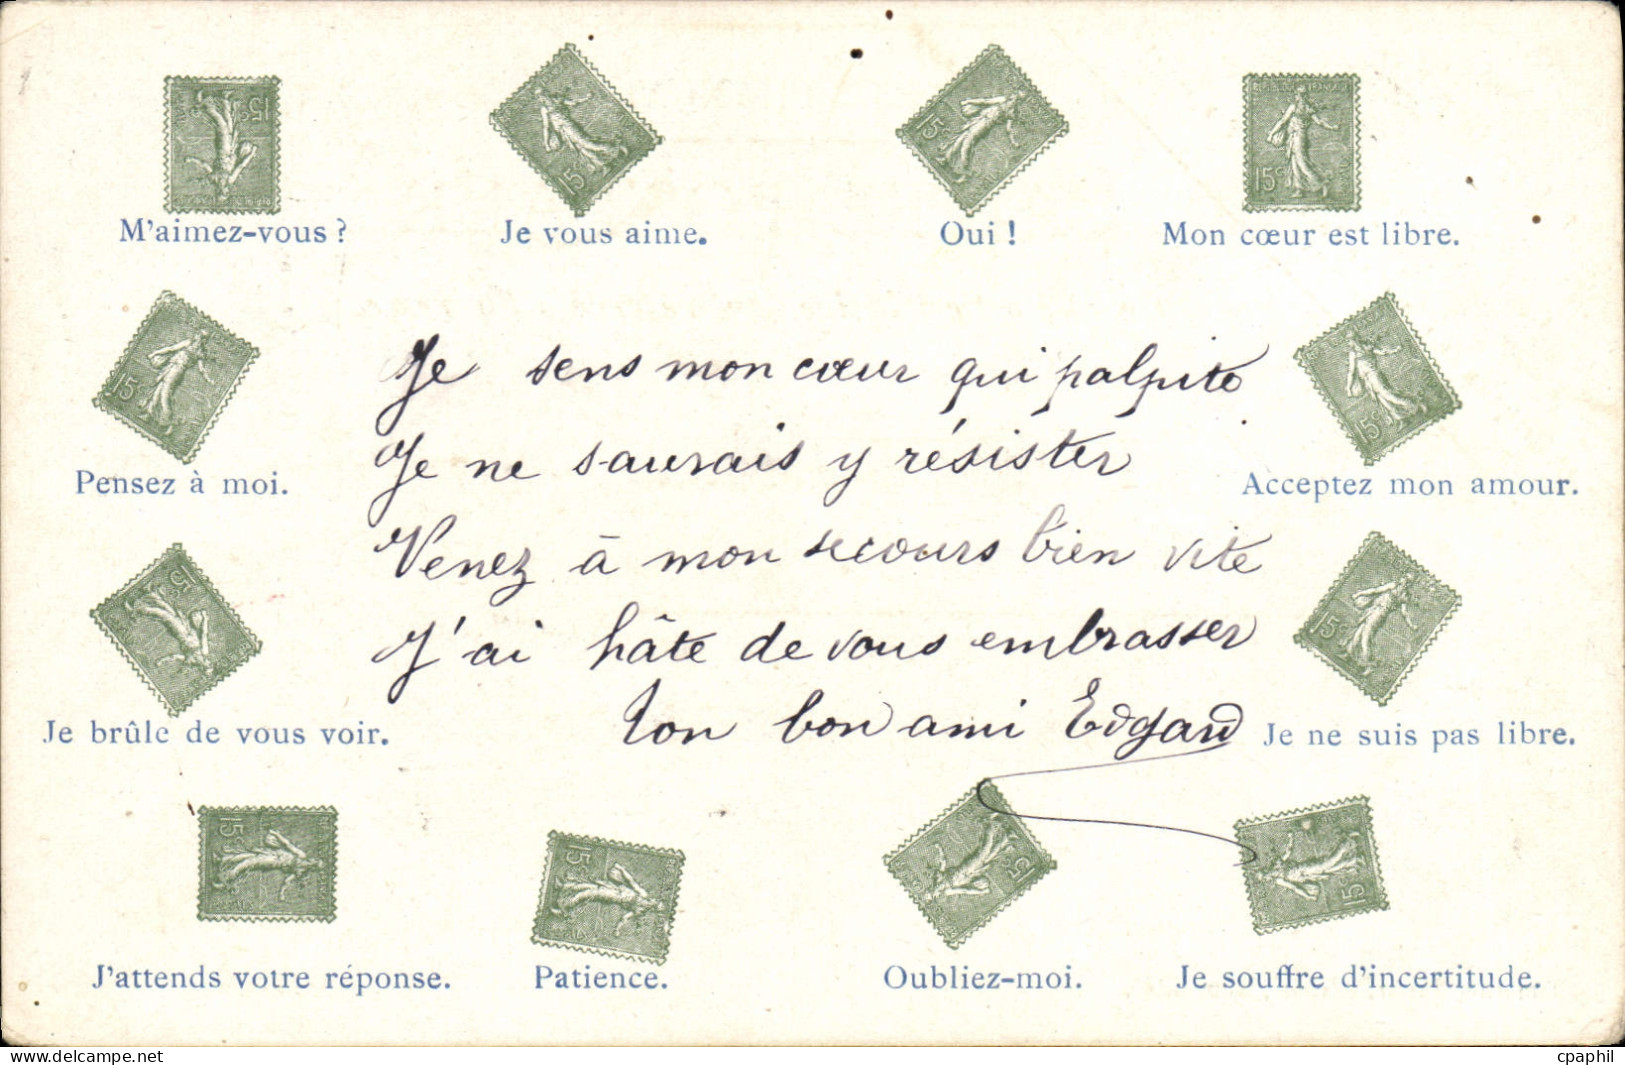 M'aimez-vous ?
Je vous aime.
Oui !
Mon cœur est libre.
Pensez à moi.
Acceptez mon amour.
Je sens mon cœur qui palpite
Je ne saurais y résister
Venez à mon secours bien vite
J'ai hâte de vous embrasser
Ton bon ami Edgard
Je brûle de vous voir.
Je ne suis pas libre.
J'attends votre réponse.
Patience.
Oubliez-moi.
Je souffre d'incertitude.
15c
15c
15c
15c
15c
15c
15c
15c
15c
15c
15c
15c
www.delcampe.net
cpaphil